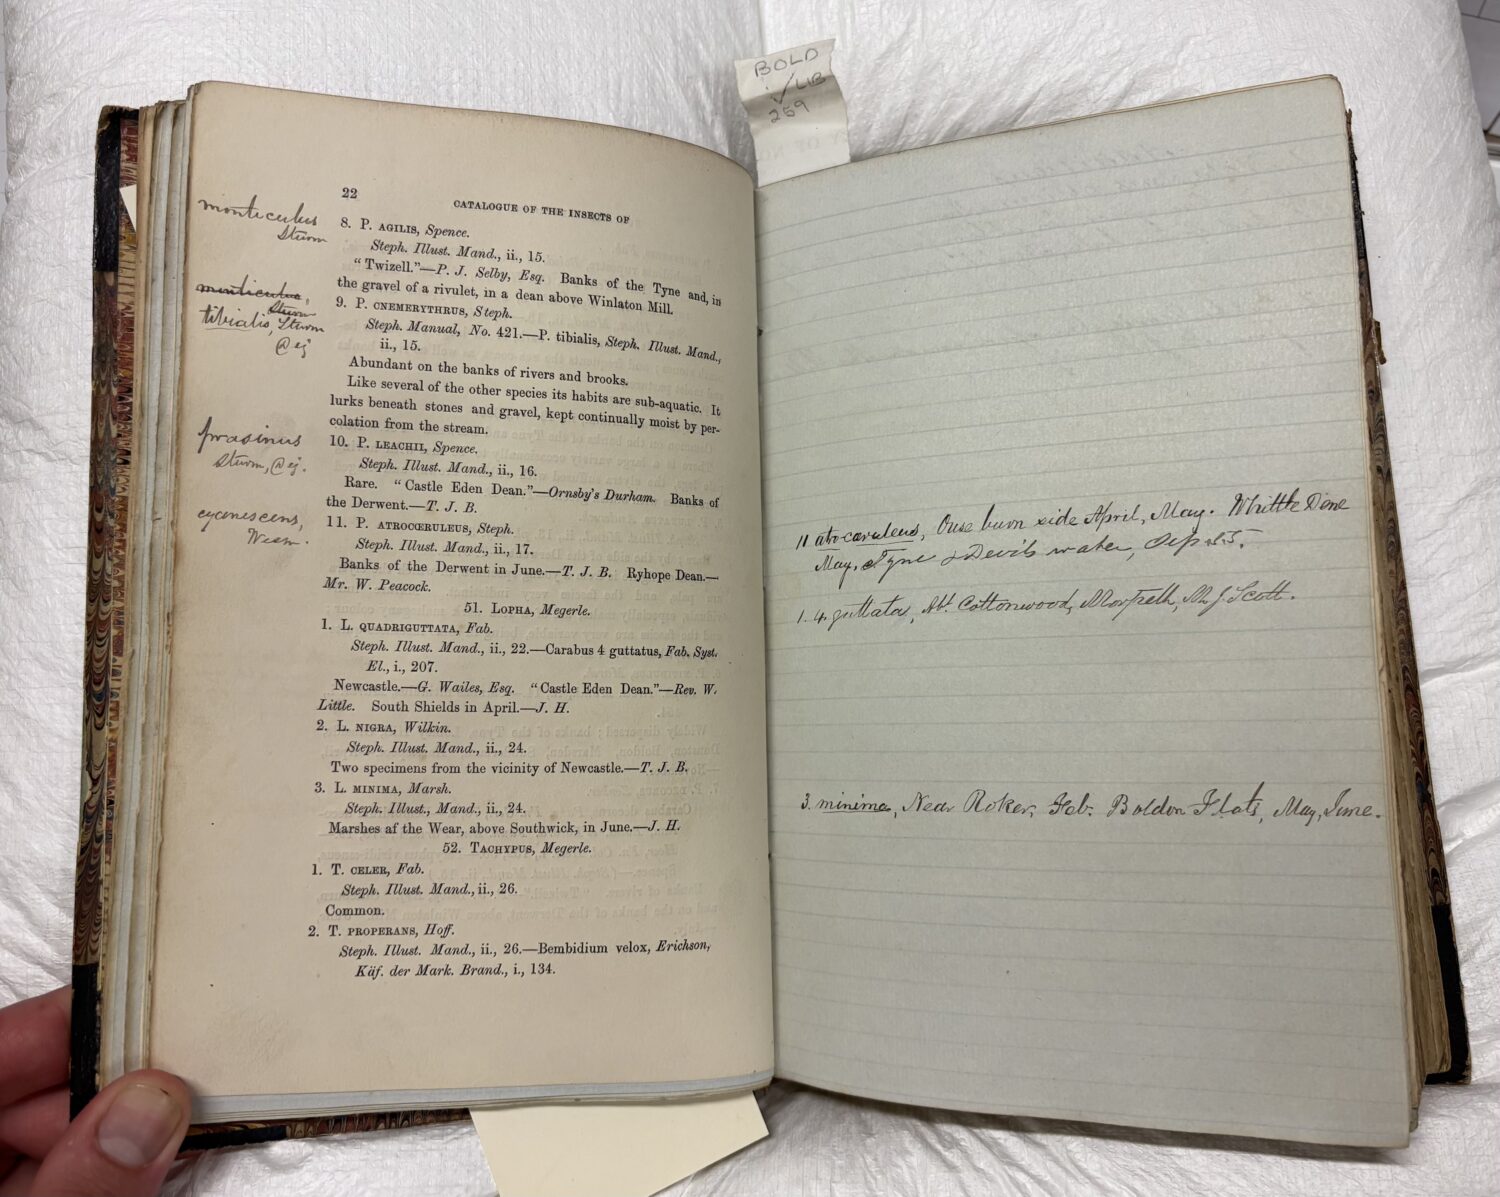 BOLD
LIB
259
22 CATALOGUE OF THE INSECTS OF
8. P. AGILIS, Spence.
Steph. Illust. Mand., ii., 15.
“Twizell.”—P. J. Selby, Esq. Banks of the Tyne and, in
the gravel of a rivulet, in a dean above Winlaton Mill.
9. P. CNEMERYTHRUS, Steph.
Steph. Manual, No. 421.—P. tibialis, Steph. Illust. Mand.,
ii., 15.
Abundant on the banks of rivers and brooks.
Like several of the other species its habits are sub-aquatic. It
lurks beneath stones and gravel, kept continually moist by per-
colation from the stream.
10. P. LEACHII, Spence.
Steph. Illust. Mand., ii., 16.
Rare. “Castle Eden Dean.”—Ornsby's Durham. Banks of
the Derwent.—T. J. B.
11. P. ATROCŒRULEUS, Steph.
Steph. Illust. Mand., ii., 17.
Banks of the Derwent in June.—T. J. B. Ryhope Dean.—
Mr. W. Peacock.
51. LOPHA, Megerle.
1. L. QUADRIGUTTATA, Fab.
Steph. Illust. Mand., ii., 22.—Carabus 4 guttatus, Fab. Syst.
El., i., 207.
Newcastle.—G. Wailes, Esq. “Castle Eden Dean.”—Rev. W.
Little. South Shields in April.—J. H.
2. L. NIGRA, Wilkin.
Steph. Illust. Mand., ii., 24.
Two specimens from the vicinity of Newcastle.—T. J. B.
3. L. MINIMA, Marsh.
Steph. Illust., Mand., ii., 24.
Marshes af the Wear, above Southwick, in June.—J. H.
52. TACHYPUS, Megerle.
1. T. CELER, Fab.
Steph. Illust. Mand., ii., 26.
Common.
2. T. PROPERANS, Hoff.
Steph. Illust. Mand., ii., 26.—Bembidium velox, Erichson,
Käf. der Mark. Brand., i., 134.
monticulus
Sturm
monticulus,
Sturm
tibialis, Sturm
prasinus
Sturm,
cyanescens,
Wesm.
11 atrocaruleus, Ouse burn side April, May. Whittle Dene
May. Tyne & Devil's water,
1. 4 guttata, Cottonwood, Morpeth, Mr J Scott.
3. minima, Near Roker, Feb. Boldon Flats, May, June.